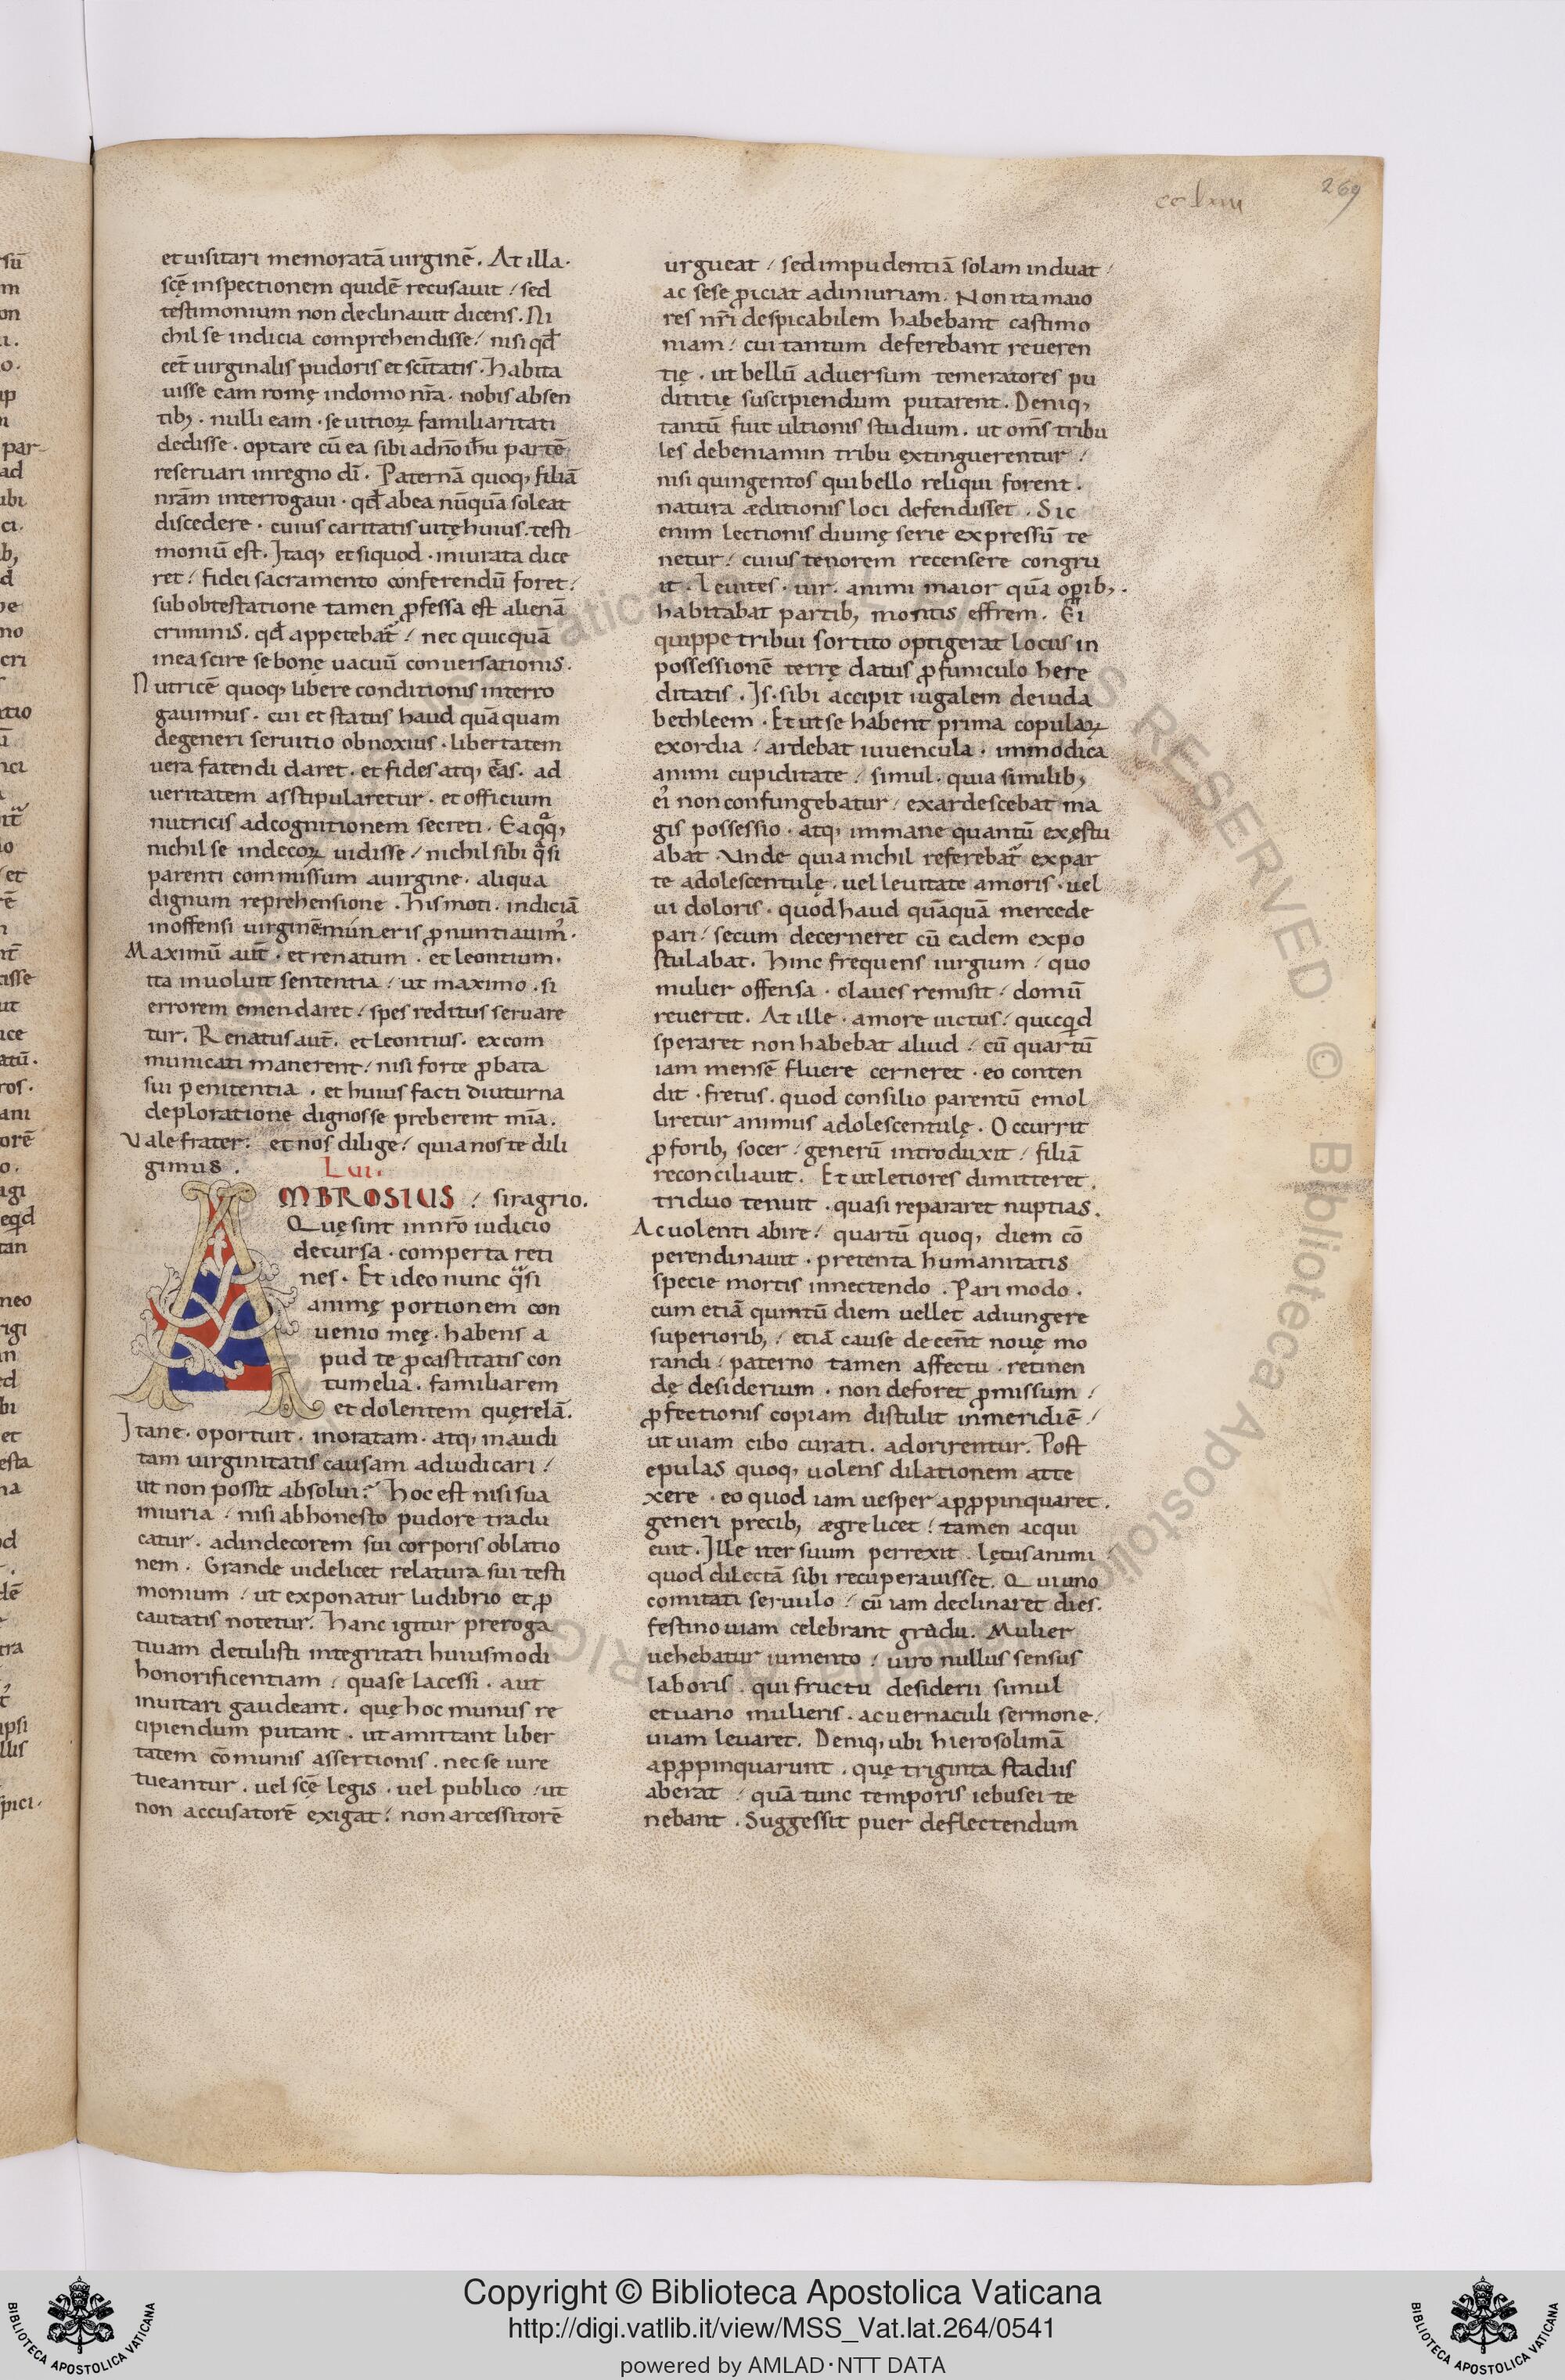 cc lxiiii
269
et uisitari memoratā uirginē. At illa.
scę̄ inspectionem quidē recusauit / sed
testimonium non declinauit dicens. Ni
chil se indicia comprehendisse / nisi qđ
cet̄ uirginalis pudoris et scītatis. Habita
uisse eam romę in domo nr̄a. nobis absen
tib; . nulli eam . se uitioꝝ familiaritati
dedisse. optare cū ea sibi ad no̅ ih̅u partē
reseruari in regno dī. Paternā quoq; filiā
nrām interrogaui. qđ ab ea nūquā soleat
discedere. cuius caritatis uitę huius. testi
moniū est. Itaq; et si quod. iniurata dice
ret / fidei sacramento conferendū foret /
sub obtestatione tamen ꝓfessa est alienā
criminis. qđ appetebat᷑ / nec quicquā
in ea scire se bonę uacuū conuersationis.
Nutricē quoq; libere conditionis interro
gauimus. cui et status haud quāquam
degeneri seruitio obnoxius. libertatem
uera fatendi daret. et fides atq; ę̄as. ad
ueritatem asstipularetur. et officium
nutricis ad cognitionem secreti. Ea qͦq;
nichil se indecoꝝ uidisse / nichil sibi qͣsi
parenti commissum a uirgine. aliqua
dignum reprehensione. His moti. indiciā
inoffensi uirginē muneris ꝓnuntiauim᷒.
Maximū aut̄. et renatum. et leontium.
ita inuoluit sententia / ut maximo. si
errorem emendaret / spes reditus seruare
tur. Renatus aut̄. et leontius. excom
municati manerent / nisi forte ꝓbata
sui penitentia. et huius facti diuturna
deploratione dignos se preberent mīa.
Vale frater. et nos dilige / quia nos te dili
gimus. Lvi.
AMBROSIUS / siragrio.
Quę sint in nrō iudicio
decursa. comperta reti
nes. Et ideo nunc qͣsi
animę portionem con
uenio meę. habens a
pud te ꝓ castitatis con
tumelia. familiarem
et dolentem quęrelā.
Itane. oportuit. inoratam. atq; inaudi
tam uirginitatis causam adiudicari /
ut non possit absolui? Hoc est nisi sua
iniuria / nisi ab honesto pudore tradu
catur. ad indecorem sui corporis oblatio
nem. Grande uidelicet relatura sui testi
monium / ut exponatur ludibrio et ꝓ
cautatis notetur. Hanc igitur preroga
tiuam detulisti integritati huiusmodi
honorificentiam / qua se lacessi. aut
inuitari gaudeant. quę hoc munus re
cipiendum putant. ut amittant liber
tatem cōmunis assertionis. nec se iure
tueantur. uel scę̄ legis. uel publico / ut
non accusatorē exigat / non arcessitorē
urgueat / sed impudentiā solam induat /
ac sese ꝓiciat ad iniuriam. Non ita maio
res nr̄i despicabilem habebant castimo
niam / cui tantum deferebant reueren
tię. ut bellū aduersum temeratores pu
dititię suscipiendum putarent. Deniq;
tantū fuit ultionis studium. ut om̄s tribu
les de beniamin tribu extinguerentur /
nisi quingentos qui bello reliqui forent.
natura æditionis loci defendisset. Sic
enim lectionis diuinę serie expressū te
netur / cuius tenorem recensere congru
it. Leuites. uir. animi maior quā opib;.
habitabat partib; montis effrem. Ei
quippe tribui sortito optigerat locus in
possessionē terrę datus ꝓ funiculo here
ditatis. Is. sibi accipit iugalem de iuda
bethleem. Et ut se habent prima copulaꝝ
exordia / ardebat iuuencula. immodica
animi cupiditate / simul. quia similib;
ei non confungebatur / exardescebat ma
gis possessio. atq; immane quantū exęstu
abat. Vnde quia nichil referebat᷑ ex par
te adolescentulę. uel leuitate amoris. uel
ui doloris. quod haud quāquā mercede
pari / secum decerneret cū eadem expo
stulabat. Hinc frequens iurgium / quo
mulier offensa. claues remisit / domū
reuertit. At ille. amore uictus / quicqid
speraret non habebat aliud / cū quartū
iam mensē fluere cerneret. eo conten
dit. fretus. quod consilio parentū emol
liretur animus adolescentulę. Occurrit
ꝓ forib; socer / generū introduxit / filiā
reconciliauit. Et ut letiores dimitteret.
triduo tenuit. quasi repararet nuptias.
Ac uolenti abire / quartū quoq; diem cō
perendinauit. pretenta humanitatis
specie mortis innectendo. Pari modo.
cum etiā quintū diem uellet adiungere
superiorib; / etiā cause decent̄ nouę mo
randi / paterno tamen affectu. retinen
dę desiderium. non deforet ꝓmissum /
ꝓfectionis copiam distulit in meridiē /
ut uiam cibo curati. adorirentur. Post
epulas quoq; uolens dilationem atte
xere. eo quod iam uesper apꝓpinquaret.
generi precib; ægre licet / tamen acqui
euit. Ille iter suum perrexit. lętus animi /
quod dilectā sibi recuperauisset. Qui uno
comitati seruulo / cū iam declinaret dies.
festino uiam celebrant gradu. Mulier
uehebatur iumento / uiro nullus sensus
laboris. qui fructu desiderii simul
et uario mulieris. ac uernaculi sermone /
uiam leuaret. Deniq; ubi hierosolimā
apꝓpinquarunt. quę triginta stadiis
aberat / quā tunc temporis iebusei te
nebant. Suggessit puer deflectendum
Copyright © Biblioteca Apostolica Vaticana
http://digi.vatlib.it/view/MSS_Vat.lat.264/0541
powered by AMLAD·NTT DATA
BIBLIOTECA APOSTOLICA VATICANA
BIBLIOTECA APOSTOLICA VATICANA